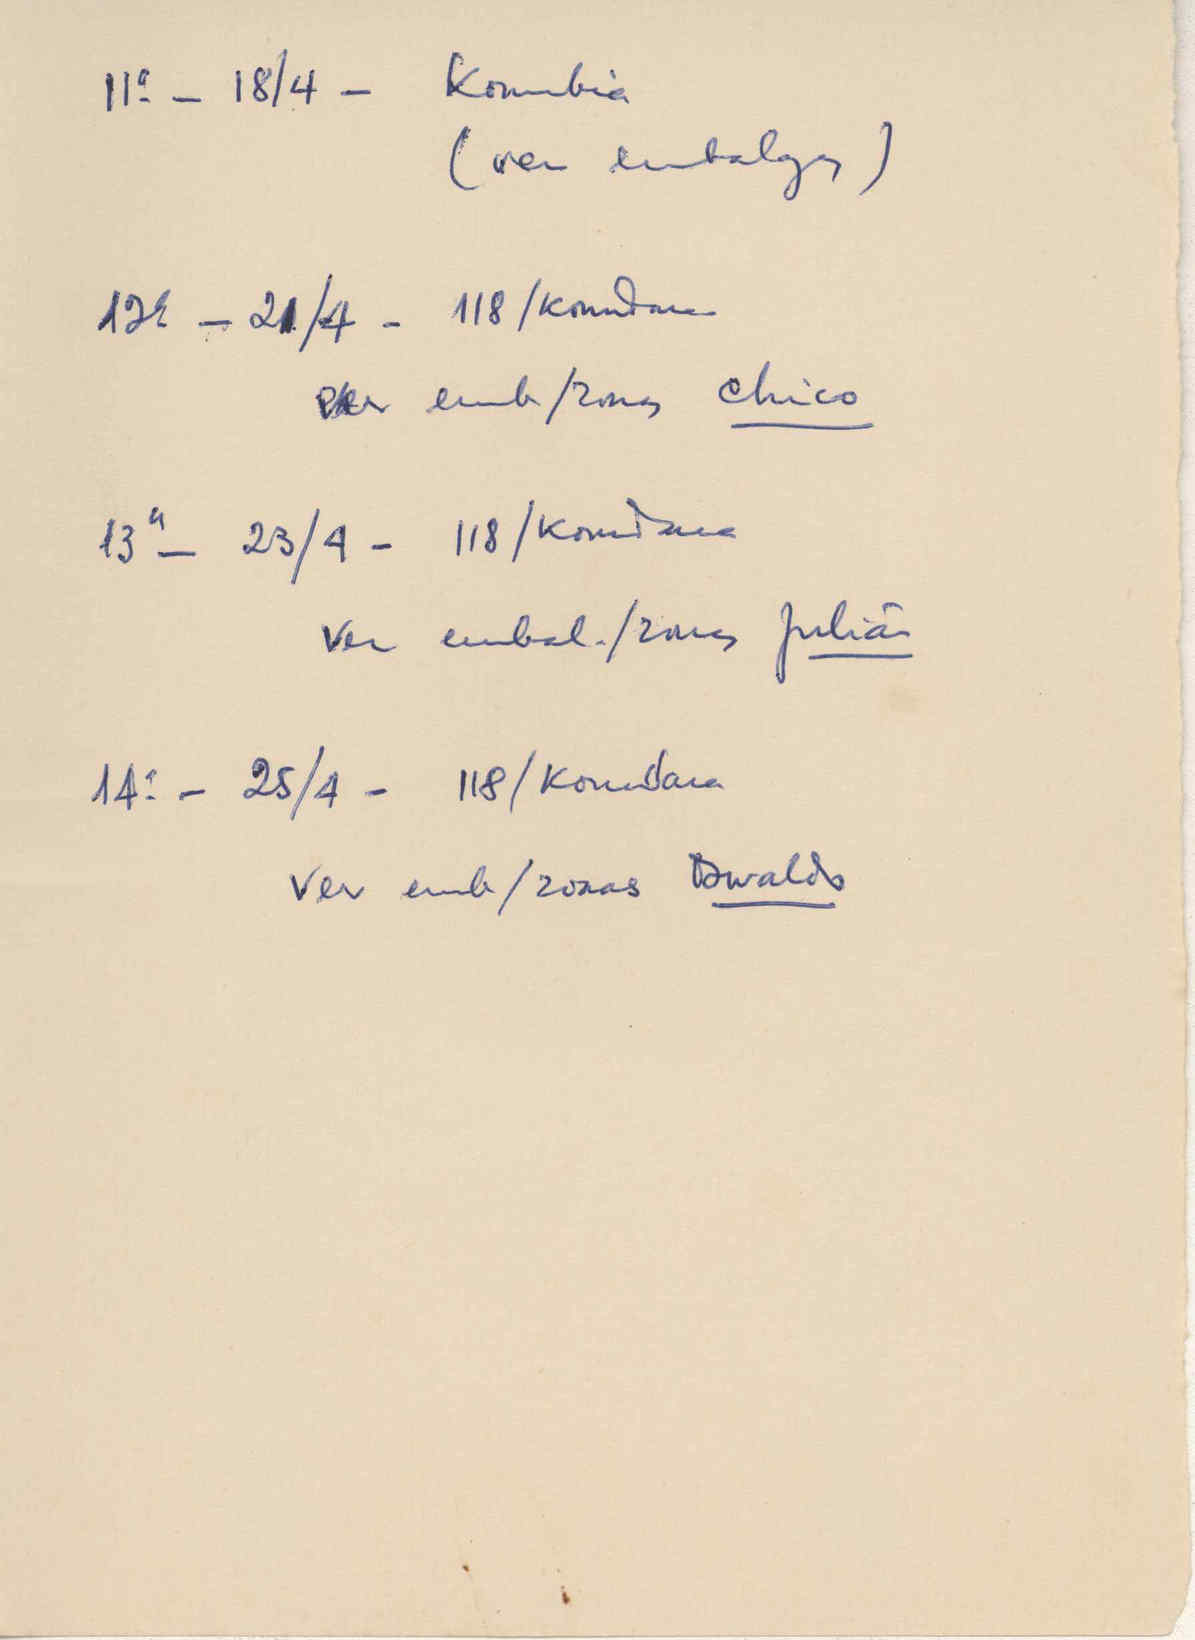 11ª - 18/4 - Konubia
(ver embalges)
12ª - 21/4 - 118/Komdara
Ver emb/zonas Chico
13ª - 23/4 - 118/Komdara
Ver embal./zonas Julián
14ª - 25/4 - 118/Komdara
Ver emb/zonas Oswaldo